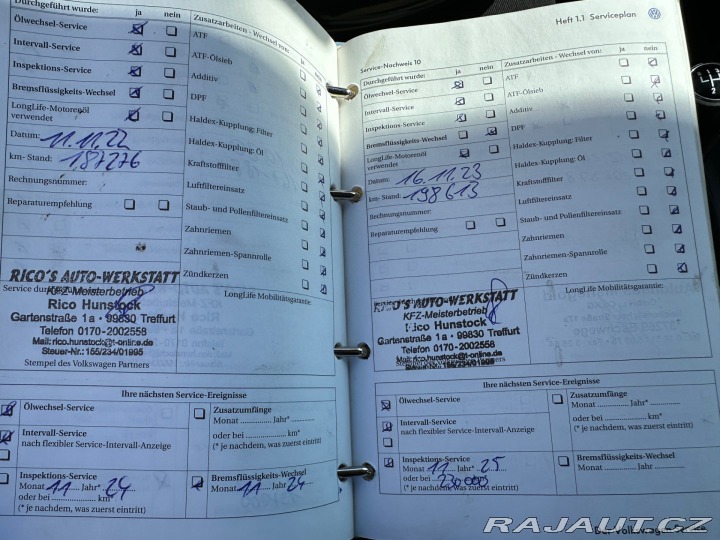 Durchgeführt wurde: ja nein
Ölwechsel-Service
Intervall-Service
Inspektions-Service
Bremsflüssigkeits-Wechsel
LongLife-Motorenöl
verwendet
Datum: 11.11.22
km-Stand: 187276
Rechnungsnummer:
Reparaturempfehlung
Zusatzarbeiten - Wechsel von: ja nein
ATF
ATF-Ölsieb
Additiv
DPF
Haldex-Kupplung: Filter
Haldex-Kupplung: Öl
Kraftstofffilter
Luftfiltereinsatz
Staub- und Pollenfiltereinsatz
Zahnriemen
Zahnriemen-Spannrolle
Zündkerzen
RICO'S AUTO-WERKSTATT
Service durchgeführt
KFZ-Meisterbetrieb
Rico Hunstock
Gartenstraße 1a · 99830 Treffurt
Telefon 0170-2002558
Mail: rico.hunstock@t-online.de
Steuer-Nr.: 155/234/01995
Stempel des Volkswagen Partners
LongLife Mobilitätsgarantie:
Ihre nächsten Service-Ereignisse
Ölwechsel-Service
Intervall-Service
nach flexibler Service-Intervall-Anzeige
Inspektions-Service
Monat 11 Jahr* 24
oder bei km*
(* je nachdem, was zuerst eintritt)
Zusatzumfänge
Monat Jahr*
oder bei km*
(* je nachdem, was zuerst eintritt)
Bremsflüssigkeits-Wechsel
Monat 11 Jahr 24
Heft 1.1 Serviceplan
Service-Nachweis 10
Durchgeführt wurde: ja nein
Ölwechsel-Service
Intervall-Service
Inspektions-Service
Bremsflüssigkeits-Wechsel
LongLife-Motorenöl
verwendet
Datum: 16.11.23
km-Stand: 198613
Rechnungsnummer:
Reparaturempfehlung
Zusatzarbeiten - Wechsel von: ja nein
ATF
ATF-Ölsieb
Additiv
DPF
Haldex-Kupplung: Filter
Haldex-Kupplung: Öl
Kraftstofffilter
Luftfiltereinsatz
Staub- und Pollenfiltereinsatz
Zahnriemen
Zahnriemen-Spannrolle
Zündkerzen
AUTO-WERKSTATT
KFZ-Meisterbetrieb
Rico Hunstock
Gartenstraße 1a · 99830 Treffurt
Telefon 0170-2002558
Mail: rico.hunstock@t-online.de
Stempel des Volkswagen Partners
LongLife Mobilitätsgarantie:
Ihre nächsten Service-Ereignisse
Ölwechsel-Service
Intervall-Service
nach flexibler Service-Intervall-Anzeige
Inspektions-Service
Monat 11 Jahr* 25
oder bei 230000
(* je nachdem, was zuerst eintritt)
Zusatzumfänge
Monat Jahr*
oder bei km*
(* je nachdem, was zuerst eintritt)
Bremsflüssigkeits-Wechsel
Monat Jahr
RAJAUT.CZ